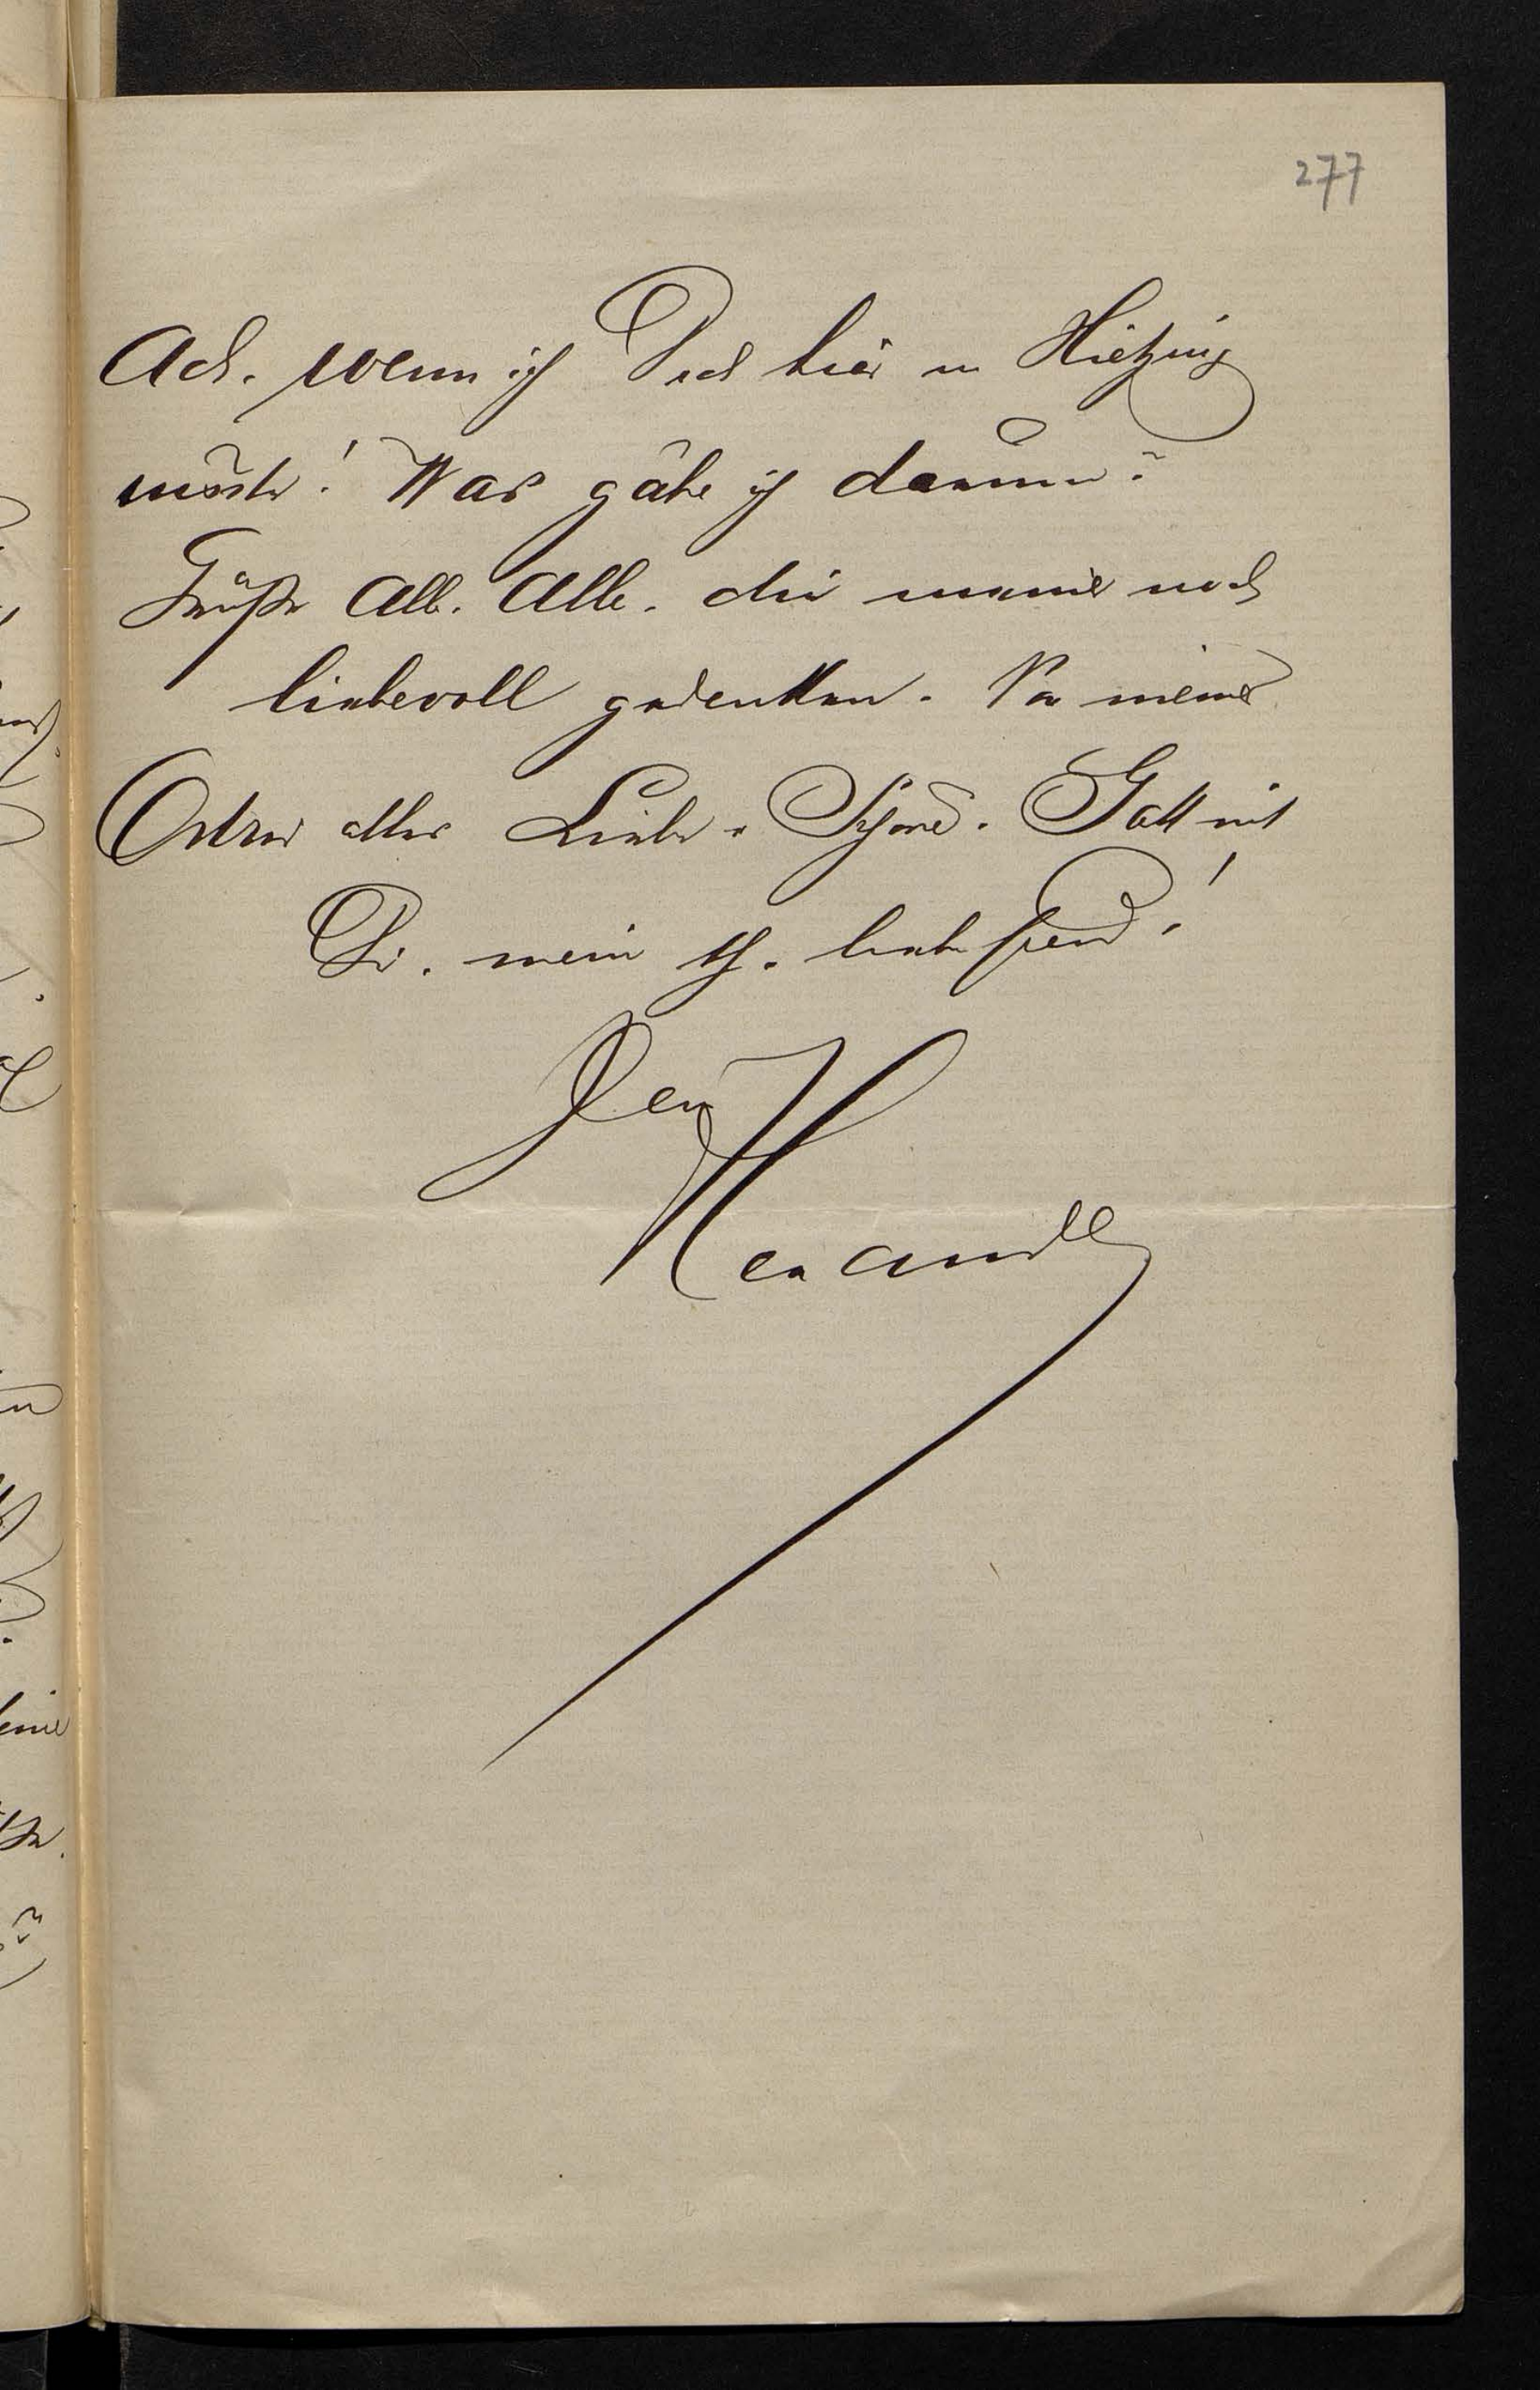 277
Ach, wenn ich Dich hier in Hietzing
wüßte! Was gäbe ich darum?
Grüße Alle, Alle, die meiner noch
liebevoll gedenken. Von meiner
alles Liebe u. Schöne. Gott mit
Dir, mein th. lieber Freund!
Dein